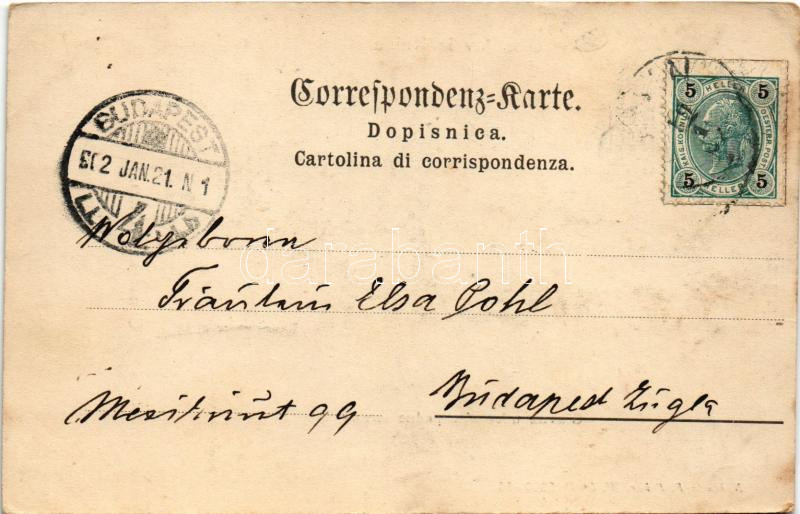 Correspondenz-Karte.
Dopisnica.
Cartolina di corrispondenza.
BUDAPEST
902 JAN. 21. N 1
5 HELLER 5
KAIS. KOENIGL. OESTERR. POST
5 HELLER 5
Wolgeboren
Fräulein Elsa Pohl
Budapest Zugló
99
darabanth